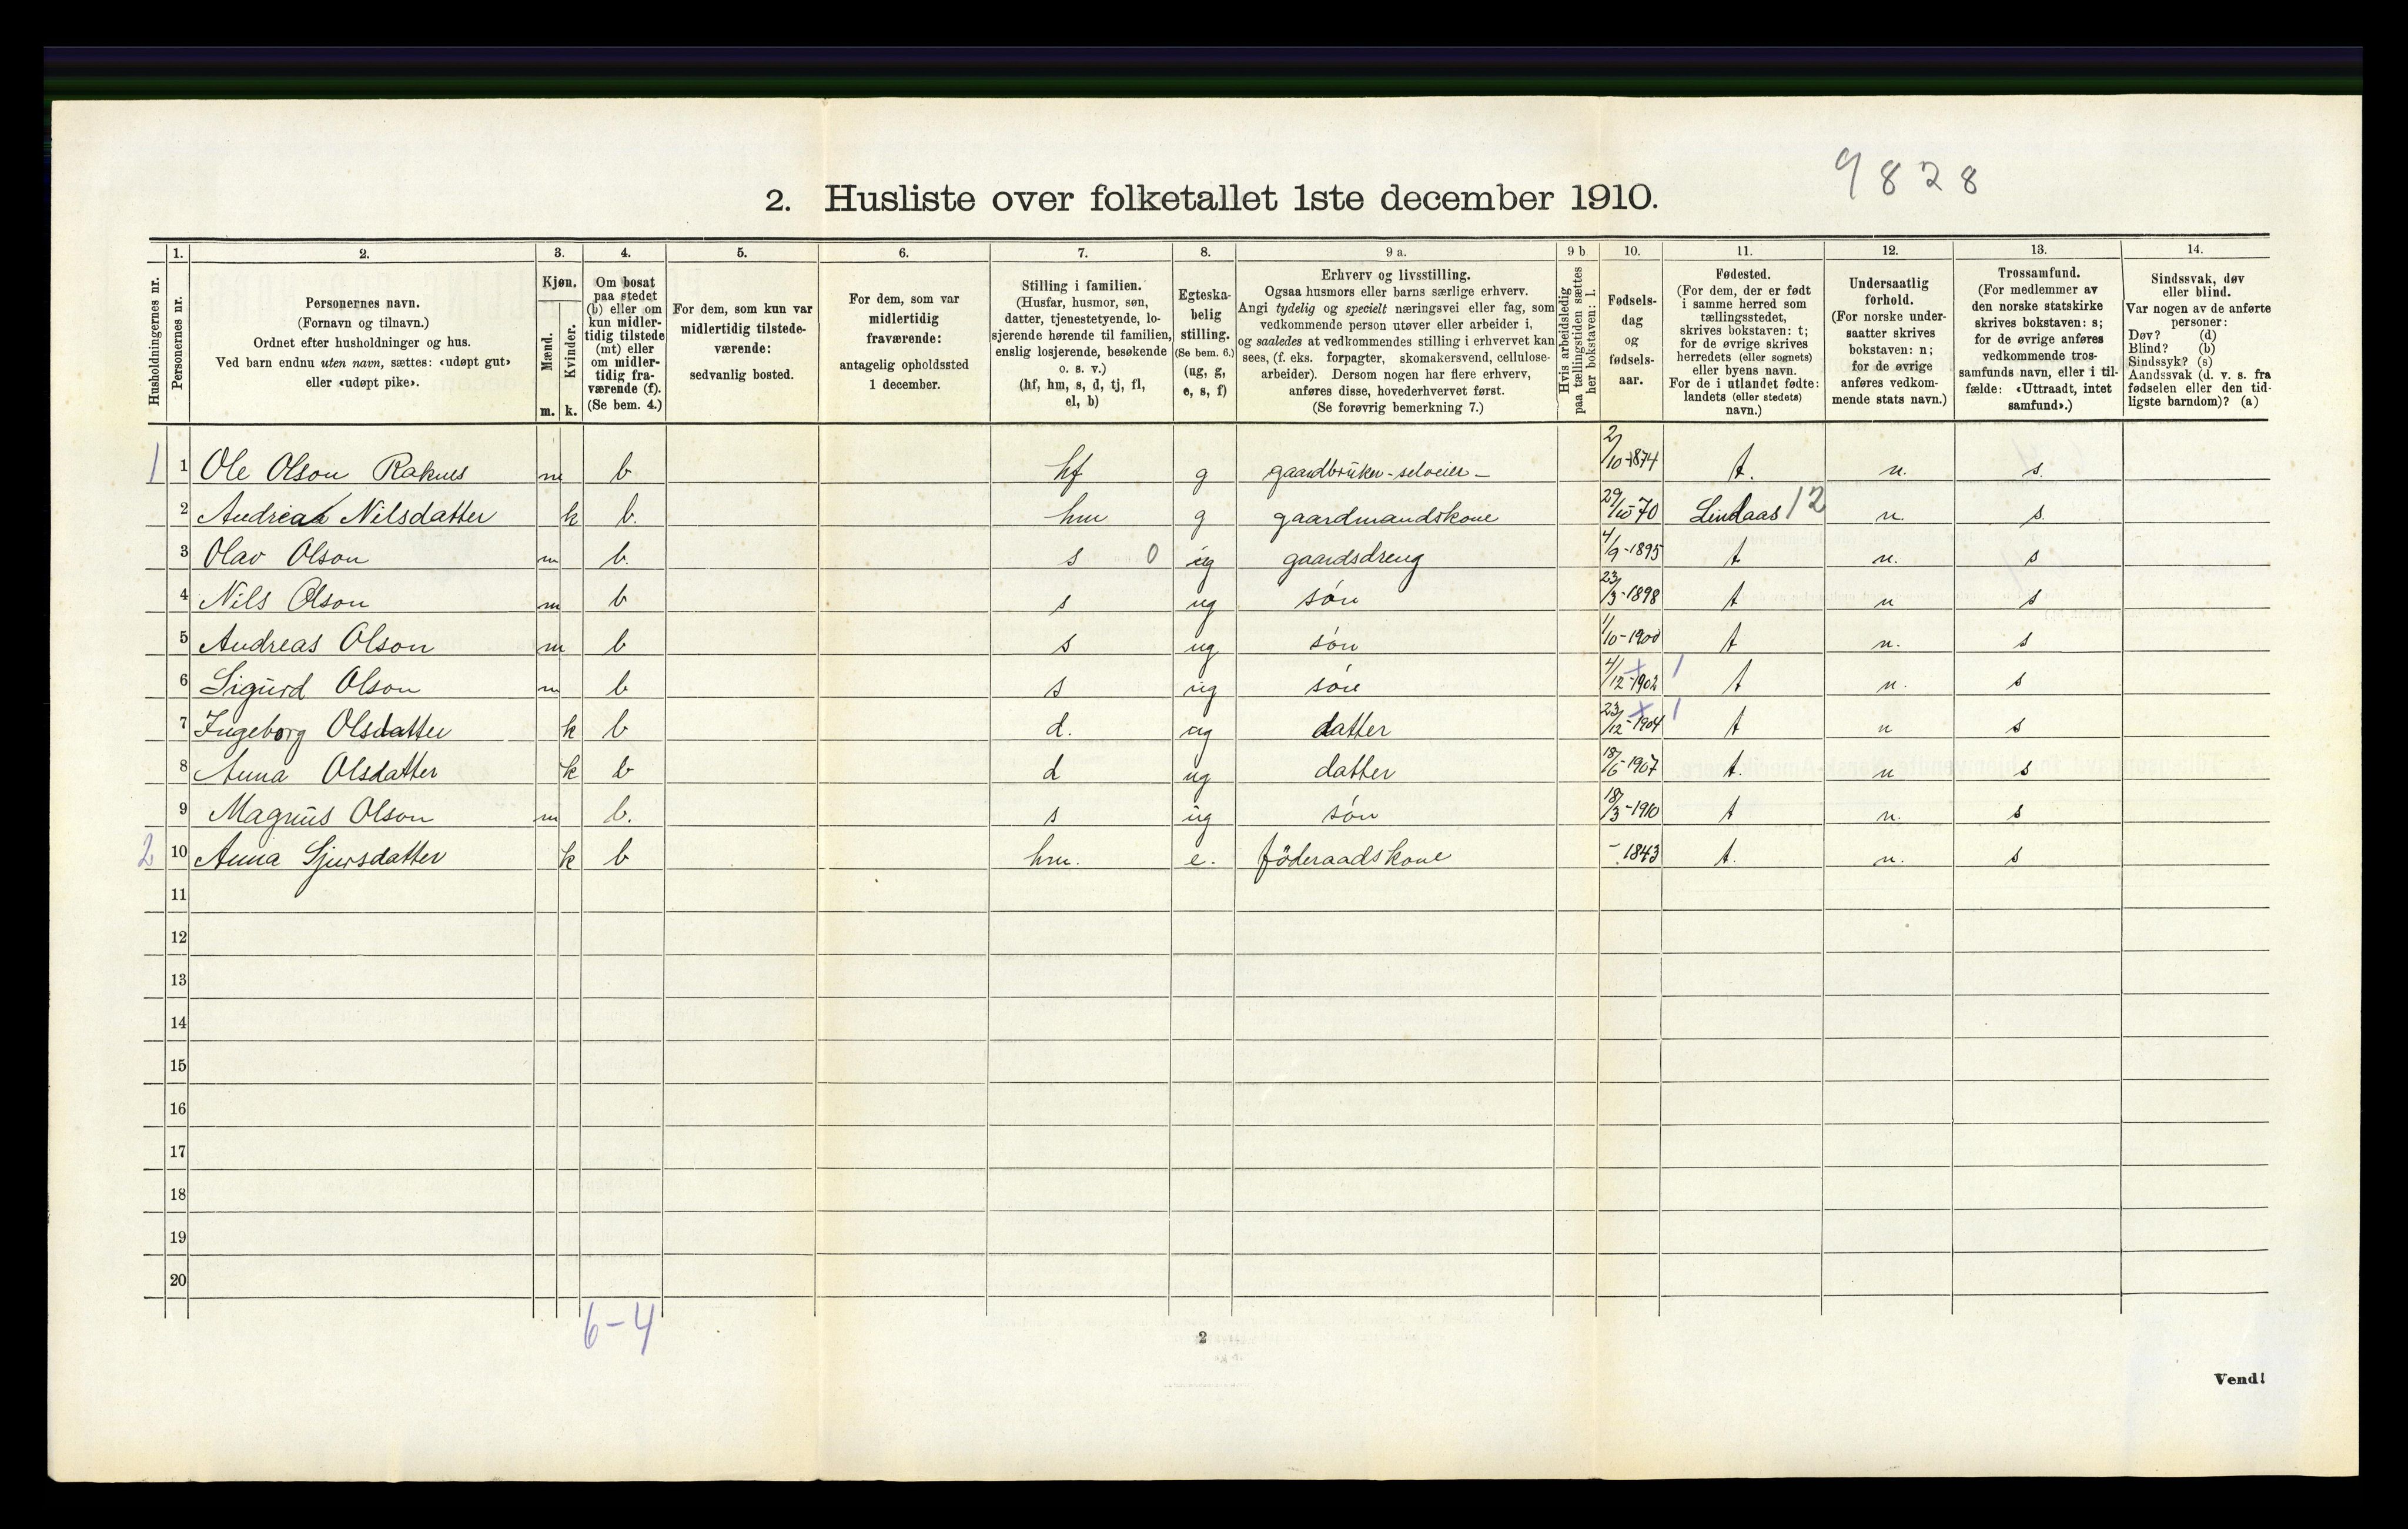 9828
2. Husliste over folketallet 1ste december 1910.
1. 2. 3. 4. 5. 6. 7. 8. 9 a. 9 b 10. 11. 12. 13. 14.
Husholdningernes nr.
Personernes nr.
Personernes navn.
(Fornavn og tilnavn.)
Ordnet efter husholdninger og hus.
Ved barn endnu uten navn, sættes: «udøpt gut»
eller «udøpt pike».
Kjøn.
Mænd.
Kvinder.
m. k.
Om bosat
paa stedet
(b) eller om
kun midler-
tidig tilstede
(mt) eller
om midler-
tidig fra-
værende (f).
(Se bem. 4.)
For dem, som kun var
midlertidig tilstede-
værende:
sedvanlig bosted.
For dem, som var
midlertidig
fraværende:
antagelig opholdssted
1 december.
Stilling i familien.
(Husfar, husmor, søn,
datter, tjenestetyende, lo-
sjerende hørende til familien,
enslig losjerende, besøkende
o. s. v.)
(hf, hm, s, d, tj, fl,
el, b)
Egteska-
belig
stilling.
(Se bem. 6.)
(ug, g,
e, s, f)
Erhverv og livsstilling.
Ogsaa husmors eller barns særlige erhverv.
Angi tydelig og specielt næringsvei eller fag, som
vedkommende person utøver eller arbeider i,
og saaledes at vedkommendes stilling i erhvervet kan
sees, (f. eks. forpagter, skomakersvend, cellulose-
arbeider). Dersom nogen har flere erhverv,
anføres disse, hovederhvervet først.
(Se forøvrig bemerkning 7.)
Hvis arbeidsledig
paa tællingstiden sættes
her bokstaven: l.
Fødsels-
dag
og
fødsels-
aar.
Fødested.
(For dem, der er født
i samme herred som
tællingsstedet,
skrives bokstaven: t;
for de øvrige skrives
herredets (eller sognets)
eller byens navn.
For de i utlandet fødte:
landets (eller stedets)
navn.)
Undersaatlig
forhold.
(For norske under-
saatter skrives
bokstaven: n;
for de øvrige
anføres vedkom-
mende stats navn.)
Trossamfund.
(For medlemmer av
den norske statskirke
skrives bokstaven: s;
for de øvrige anføres
vedkommende tros-
samfunds navn, eller i til-
fælde: «Uttraadt, intet
samfund».)
Sindssvak, døv
eller blind.
Var nogen av de anførte
personer:
Døv? (d)
Blind? (b)
Sindssyk? (s)
Aandssvak (d. v. s. fra
fødselen eller den tid-
ligste barndom)? (a)
1 1 Ole Olson Raknes m b hf g gaardbruker-selveier- 2/10-1874 t. n. s.
2 Andrea Nilsdatter k b. hm g gaardmandskone 29/10 70 Lindaas 12 n. s.
3 Olav Olson m b. s 0 ug gaardsdreng 4/9-1895 t n. s
4 Nils Olson m b s ug søn 23/3-1898 t n s
5 Andreas Olson m b s ug søn 1/10-1900 t n. s
6 Sigurd Olson m b s ug søn 4/12-1902 1 t n. s
7 Ingeborg Olsdatter k b d. ug datter 23/12-1904 1 t n s
8 Anna Olsdatter k b d ug datter 18/6-1907 t. n s
9 Magnus Olson m b. s ug søn 18/3-1910 t n. s
2 10 Anna Sjursdatter k b hm. e. föderaadskone - 1843 t. n. s
11
12
13
14
15
16
17
18
19
20
6-4
2
Vend!